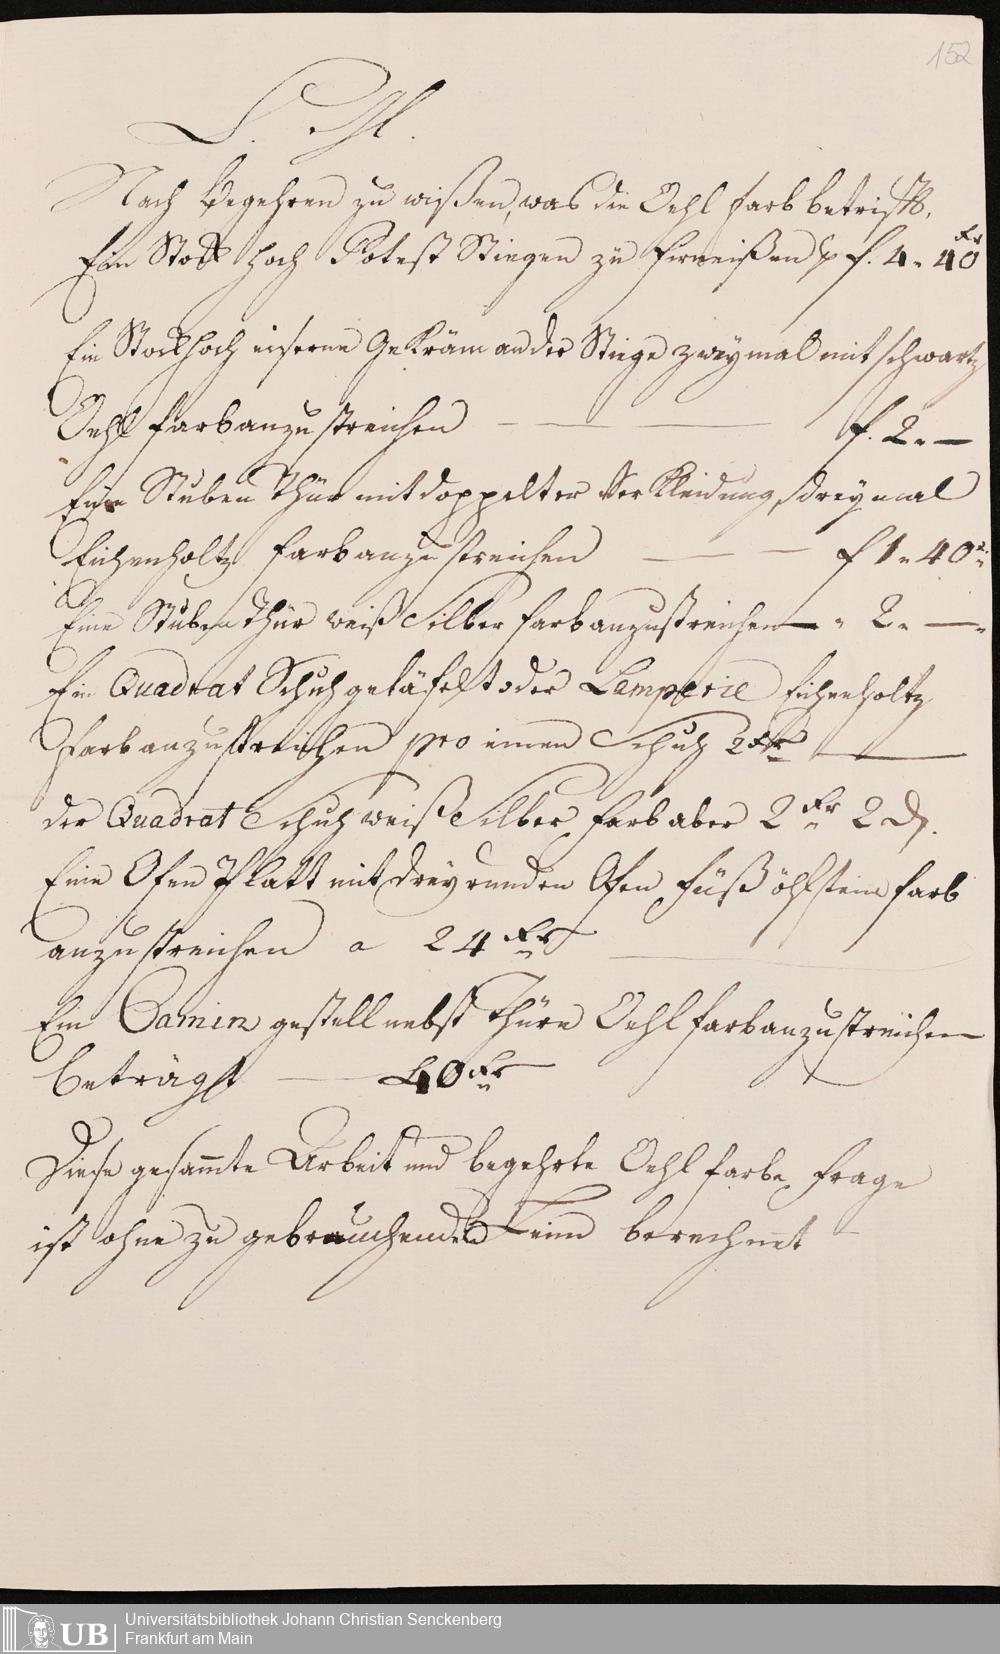 152
Nach Begehren zu wißen, was die Oehl farb betrifft.
Ein Stock hoch Potest Stiegen zu firneißen p f. 4 " 40 Kr
Ein Stockhoch eiserne Gekräm an der Stiege zweymal mit schwartz
Oehl farb anzustreichen — — — f. 2 " —
Eine Stuben Thür mit doppelter Verkleidung, dreymal
Eichenholtz farb anzustreichen — — — f 1 " 40
Eine Stuben Thür weiß Silber farb anzustreichen — " 2 " — "
Ein Quadrat Schuh getäfelt oder Lamperie Eichenholtz
Farb anzustreichen pro einen Schuh 2 Kr
der Quadrat Schuh weiß Silber farb aber 2 Kr 2 d.
Eine Ofen Platt mit drey runden Ofen füß öhlstein farb
anzustreichen a 24 Kr
Ein Camin gestell nebst Thüre Oehl farb anzustreichen
beträgt — 40 Kr
Diese gesam̄te Arbeit und begehrte Oehl farbe frage
ist ohne zu gebrauchenden Leim berechnet
UB Universitätsbibliothek Johann Christian Senckenberg
Frankfurt am Main